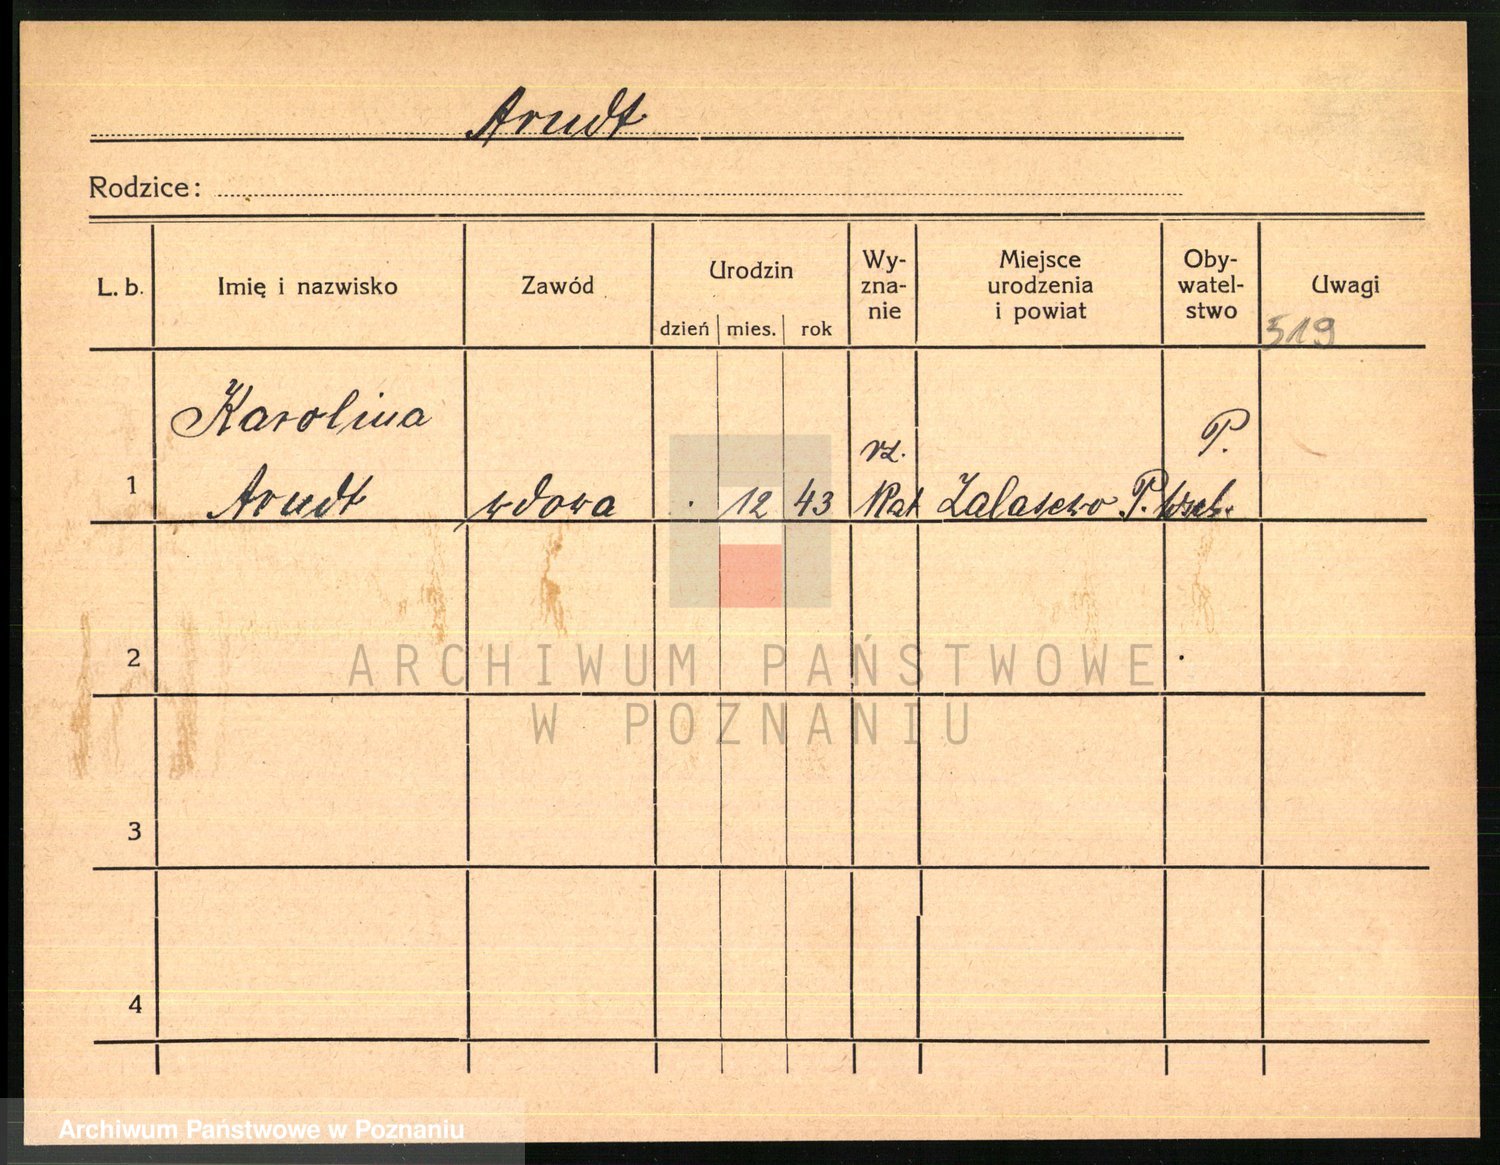 Arndt
Rodzice:
L. b.
Imię i nazwisko
Zawód
Urodzin
dzień
mies.
rok
Wy-
zna-
nie
Miejsce
urodzenia
i powiat
Oby-
watel-
stwo
Uwagi
519
1
Karolina
Arndt
wdowa
. 12 43
rz.
Kat
Zalasewo P.
P.
2
3
4
ARCHIWUM PAŃSTWOWE
W POZNANIU
Archiwum Państwowe w Poznaniu